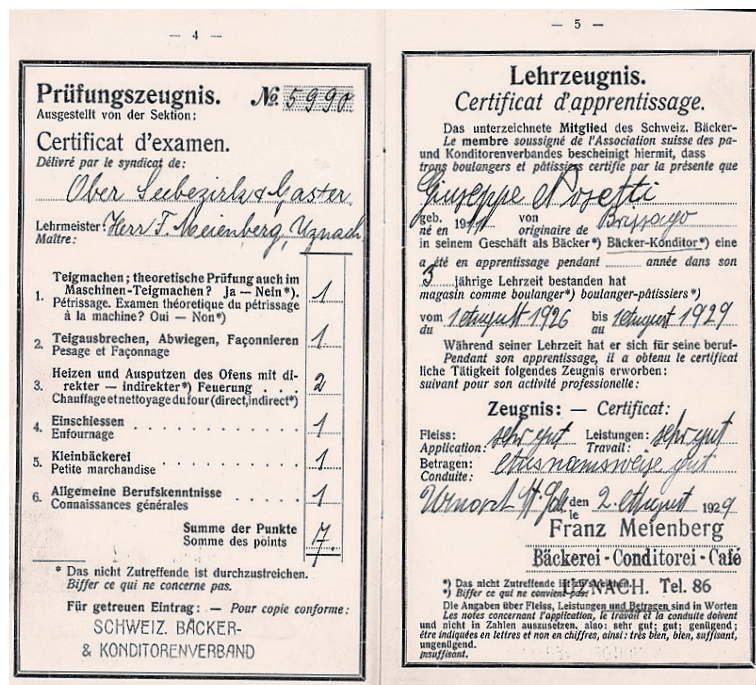 — 4 —
Prüfungszeugnis. № 5990
Ausgestellt von der Sektion:
Certificat d'examen.
Délivré par le syndicat de:
Ober Seebezirk & Gaster
Lehrmeister: Herr F. Meienberg, Uznach
Maître:
Teigmachen; theoretische Prüfung auch im
1. Maschinen-Teigmachen? Ja — Nein*). 1
Pétrissage. Examen théoretique du pétrissage
à la machine? Oui — Non*)
2. Teigausbrechen, Abwiegen, Façonnieren 1
Pesage et Façonnage
Heizen und Ausputzen des Ofens mit di-
3. rekter — indirekter*) Feuerung . . . 2
Chauffage et nettoyage du four (direct, indirect*)
4. Einschiessen . . . . . . . . . . 1
Enfournage
5. Kleinbäckerei . . . . . . . . . 1
Petite marchandise
6. Allgemeine Berufskenntnisse . . . . 1
Connaissances générales
Summe der Punkte 7.
Somme des points
* Das nicht Zutreffende ist durchzustreichen.
Biffer ce qui ne concerne pas.
Für getreuen Eintrag: — Pour copie conforme:
SCHWEIZ. BÄCKER-
& KONDITORENVERBAND
— 5 —
Lehrzeugnis.
Certificat d'apprentissage.
Das unterzeichnete Mitglied des Schweiz. Bäcker-
Le membre soussigné de l'Association suisse des pa-
und Konditorenverbandes bescheinigt hiermit, dass
trons boulangers et pâtissiers certifie par la présente que
Giuseppe
geb. 1911 von Brissago
né en originaire de
in seinem Geschäft als Bäcker*) Bäcker-Konditor*) eine
a été en apprentissage pendant année dans son
3 jährige Lehrzeit bestanden hat
magasin comme boulanger*) boulanger-pâtissiers*)
vom 1 August 1926 bis 1 August 1929
du au
Während seiner Lehrzeit hat er sich für seine beruf-
Pendant son apprentissage, il a obtenu le certificat
liche Tätigkeit folgendes Zeugnis erworben:
suivant pour son activité professionelle:
Zeugnis: — Certificat:
Fleiss: sehr gut Leistungen: sehr gut
Application: Travail:
Betragen: Ausnamsweise gut
Conduite:
den 2. August 1929
le
Franz Meienberg
Bäckerei-Conditorei-Café
UZNACH. Tel. 86
*) Das nicht Zutreffende ist zu streichen.
*) Biffer ce qui ne convient pas:
Die Angaben über Fleiss, Leistungen und Betragen sind in Worten
Les notes concernant l'application, le travail et la conduite doivent
und nicht in Zahlen auszusetzen, also: sehr gut; gut; genügend;
être indiquées en lettres et non en chiffres, ainsi: très bien, bien, suffisant,
ungenügend.
insuffisant.